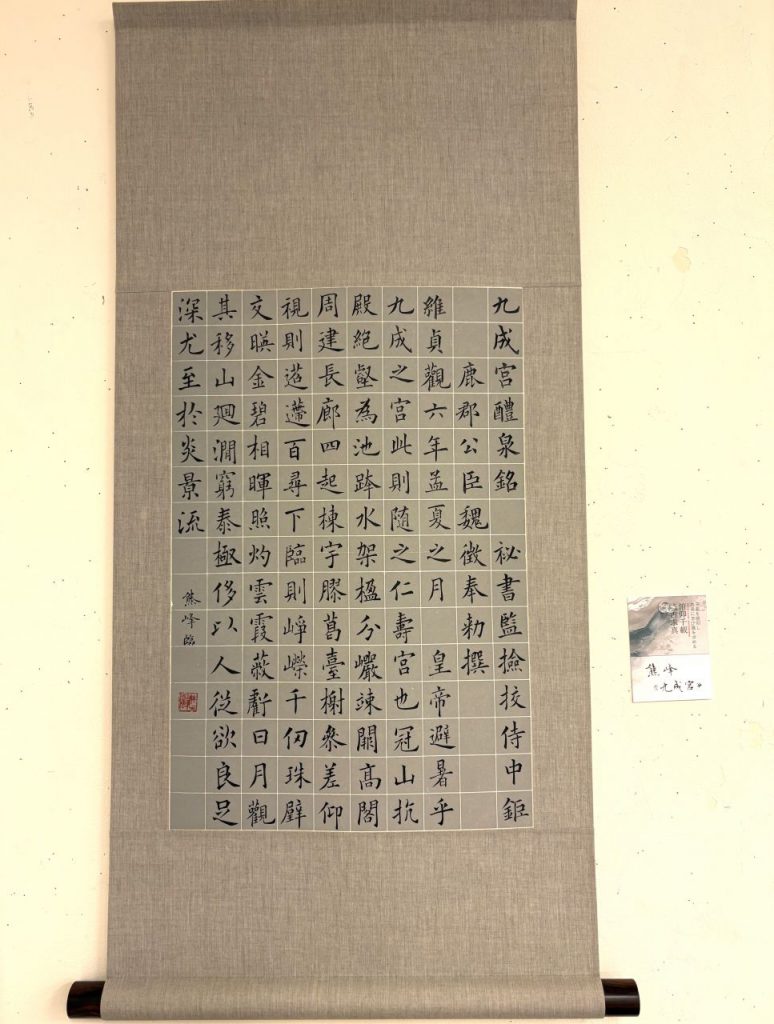 九成宮醴泉銘 祕書監撿挍侍中鉅
鹿郡公臣魏徴奉勑撰
維貞觀六年孟夏之月 皇帝避暑乎
九成之宮此則随之仁壽宮也冠山抗
殿絶壑為池跨水架楹分巖竦闕高閣
周建長廊四起棟宇膠葛臺榭叅差仰
視則迢遰百尋下臨則崢嶸千仞珠壁
交暎金碧相暉照灼雲霞蔽虧日月觀
其移山廻澗窮泰極侈以人從欲良足
深尤至於炎景流
熊峰臨
熊峰
《九成宮》